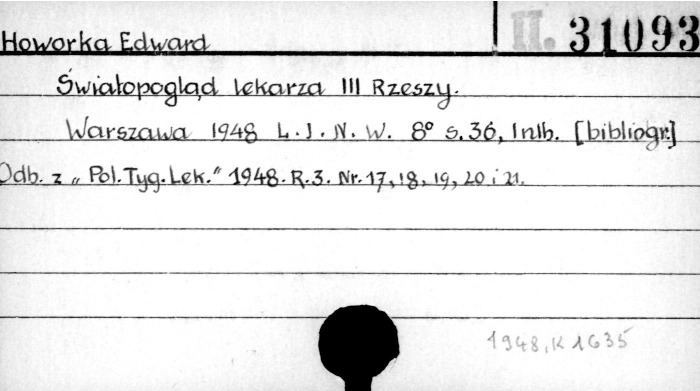 II. 31093
Howorka Edward
Światopogląd lekarza III Rzeszy.
Warszawa 1948 L. I. N. W. 8° s. 36, 1 nlb. [bibliogr.]
Odb. z „Pol. Tyg. Lek." 1948. R. 3. Nr. 17, 18, 19, 20 i 21.
1948, K 1635